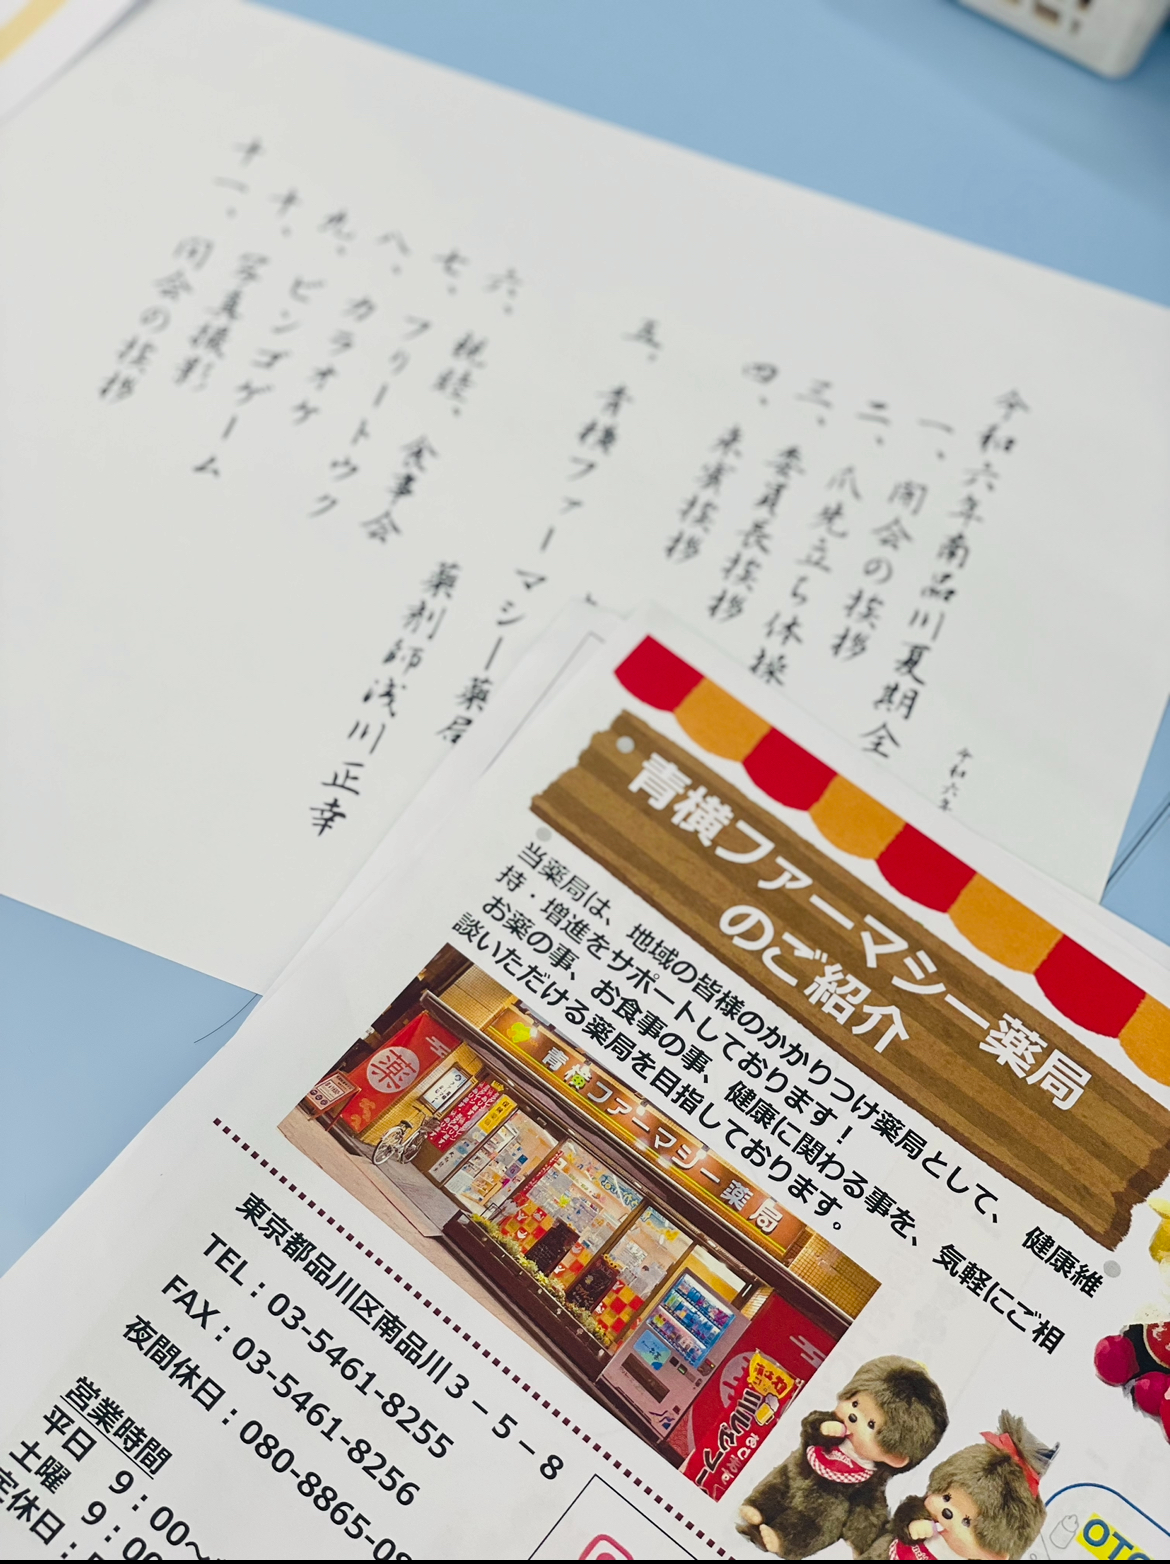 令和六年南品川夏期全
令和六年
一、開会の挨拶
二、爪先立ち体操
三、委員長挨拶
四、来賓挨拶
五、青横ファーマシー薬局
薬剤師浅川正幸
六、
七、
食事会
八、フリートウク
九、カラオケ
十、ビンゴゲーム
写真撮影
十一、閉会の挨拶
青横ファーマシー薬局
のご紹介
当薬局は、地域の皆様のかかりつけ薬局として、健康維
持・増進をサポートしております！
お薬の事、お食事の事、健康に関わる事を、気軽にご相
談いただける薬局を目指しております。
薬
青横ファーマシー薬局
東京都品川区南品川３－５－８
TEL：03-5461-8255
FAX：03-5461-8256
夜間休日：080-8865-0
営業時間
平日 9：00～
土曜 9：00
定休日：